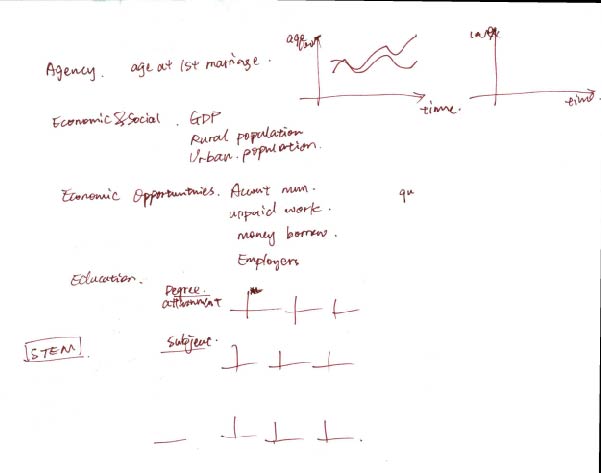 Agency. age at 1st marriage.
age
time.
time
Economic & Social. GDP
Rural population
Urban. population.
Economic Opportunities. Account num.
unpaid work.
money borrow.
Employers
qu
Education.
Degree.
attainment
STEM.
Subject.